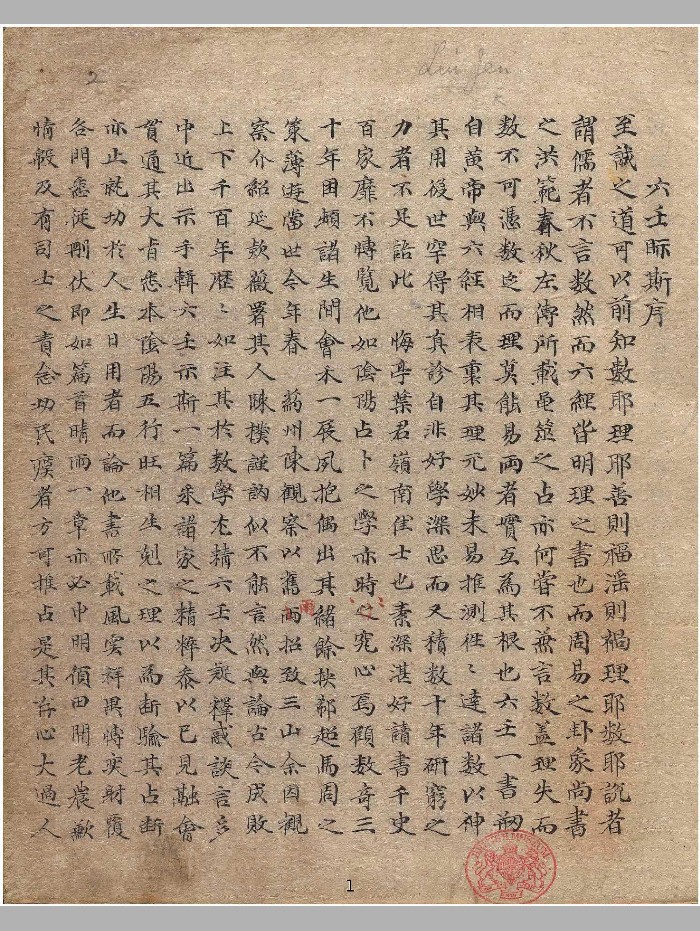 六壬眎斯序
至誠之道可以前知數耶理耶善則福滛則禍理耶數耶說者
謂儒者不言數然而六經皆明理之書也而周易之卦象尚書
之洪範春秋左傳所載黾筮之占亦何甞不兼言數盖理失而
數不可憑數乏而理莫能易両者實互為其根也六壬一書剏
自黃帝與六經相表裏其理元妙未易推測徃〻達諸數以神
其用後世罕得其真診自非好學深思而又積數十年研窮之
力者不足詣此 悔亭葉君嶺南佳士也素深湛好讀書千史
百家靡不愽覧他如隂陽占卜之學亦時之究心焉顧數奇三
十年困頓諸生間會未一展夙抱偶出其緒餘挟郗超馬周之
策薄遊當世今年春 蘓州陳觀察以舊雨招致三山余因觀
察介紹延欵薇署其人陳樸謹訥似不能言然與論古今成敗
上下千百年歴〻如注其於數學尤精六壬决疑釋惑談言多
中近出示手輯六壬示斯一篇采諸家之精粹叅以已見融會
貫通其大㫖悉本隂陽五行旺相生剋之理以為斷驗其占断
亦止就功於人生日用者而論他書所載風雲祥異愽奕射覆
各門悉從刪伏即如篇首晴雨一章亦必申明價田閒老農歉
情殷及有司士之責念功民瘼者方可推占是其存心大過人
2
1